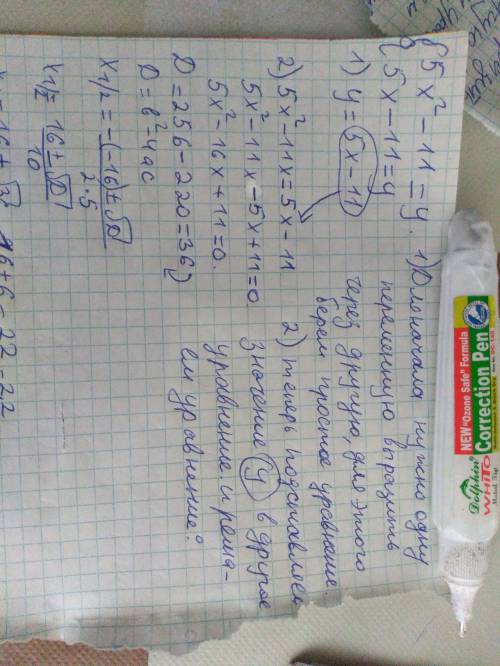 {5x²-11=y.
{5x-11=y
1) y=5x-11
2) 5x²-11x=5x-11
5x²-11x-5x+11=0
5x²-16x+11=0.
D=256-220=36)
D=b²-4ac
x1/2=-(-16)±√D
2·5
x1/2=16±√D
10
1) Для начала нужно одну
переменную выразить
через другую, для этого
берем простое уравнение.
2) теперь подставляем
значение (y) в другое
уравнение. и реша-
ем уравнение:
Dolphin
WHITO
NEW "Ozone Safe" Formula
Correction Pen